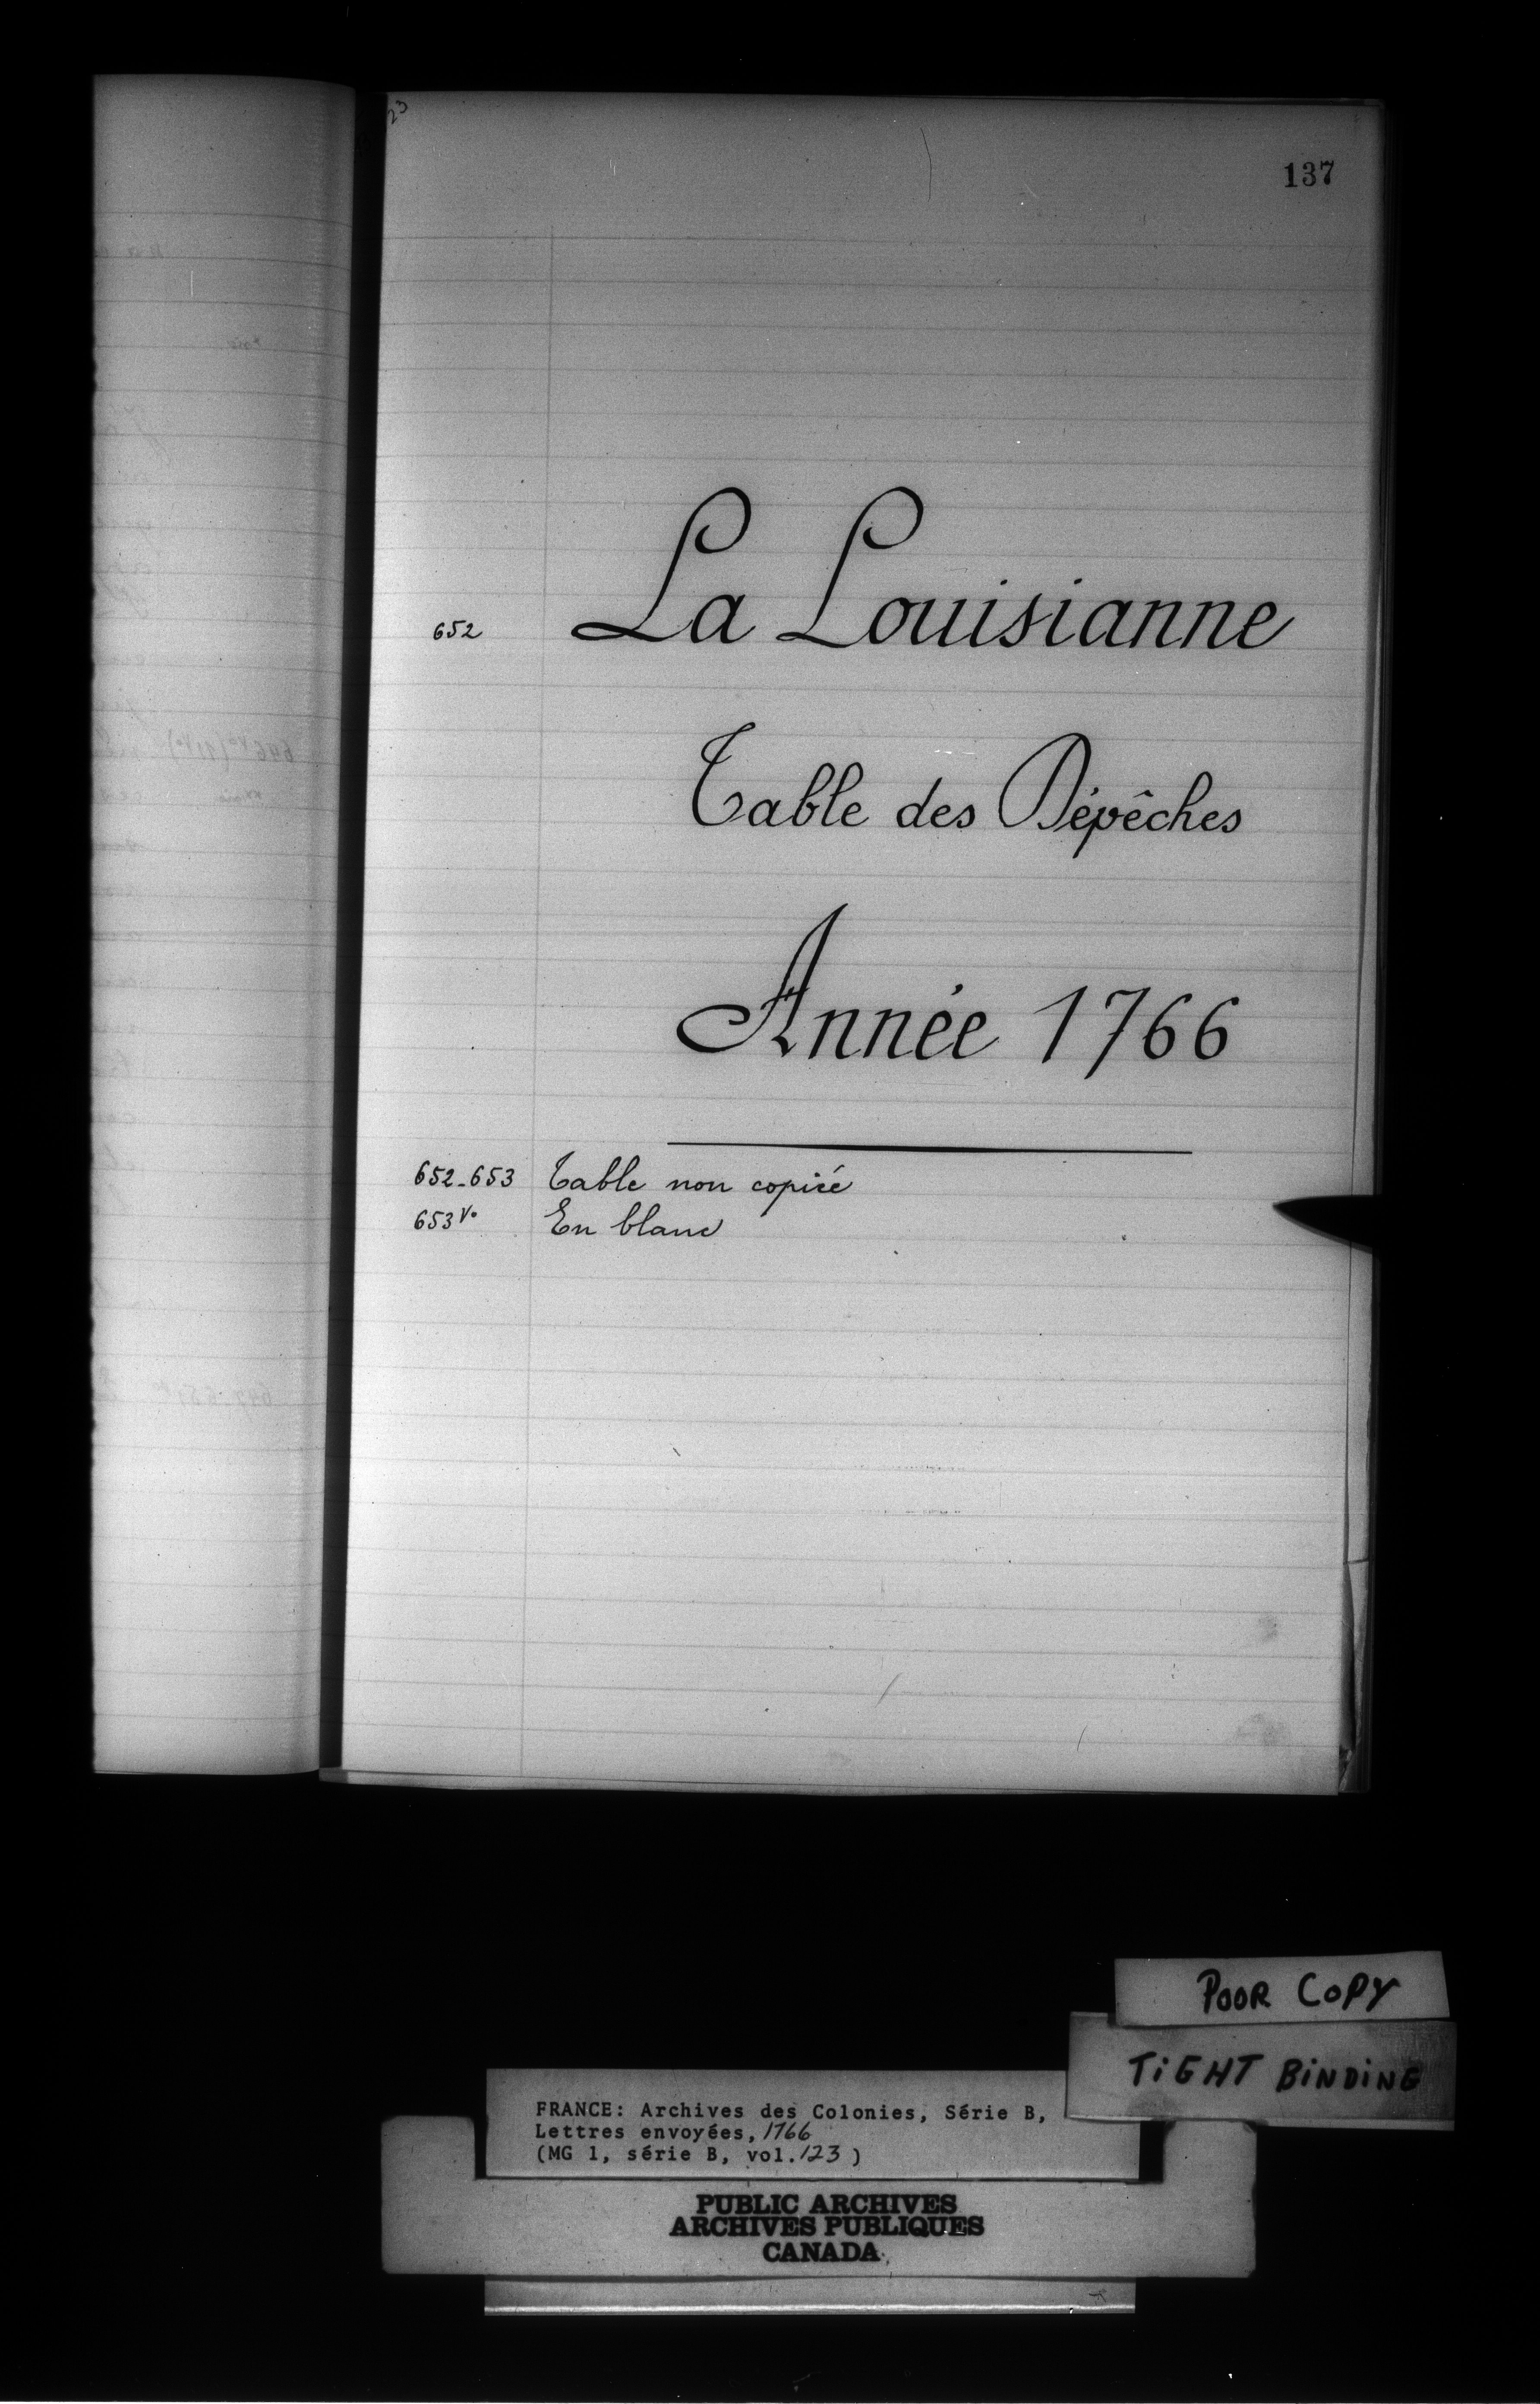 23
137
652 La Louisianne
Table des Dépêches
Année 1766
652-653 Table non copiée
653 Vo En blanc
POOR COPY
TIGHT BINDING
FRANCE: Archives des Colonies, Série B,
Lettres envoyées, 1766
(MG 1, série B, vol. 123 )
PUBLIC ARCHIVES
ARCHIVES PUBLIQUES
CANADA